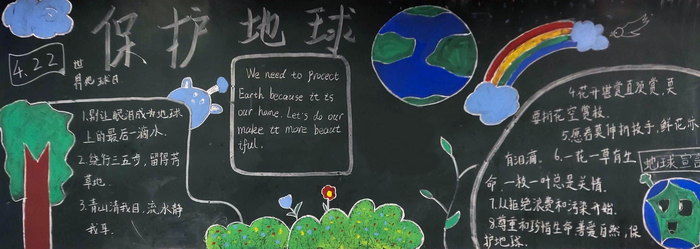 保护地球
4.22 世
界地球日
1.别让眼泪成为地球
上的最后一滴水.
2.绕行三五步,留得芳
草地.
3.青山清我目,流水静
我耳.
We need to procect
Earth because it is
our home. Let's do our
make it more beaut
iful.
4.花开堪赏直须赏,莫
要折花空赏枝.
5.愿君莫伸折技手,鲜花亦
有泪滴. 6.一花一草有生
命,一枝一叶总是关情.
7.从拒绝浪费和污染开始.
8.尊重和珍惜生命,善爱自然,保
护地球.
地球宣言